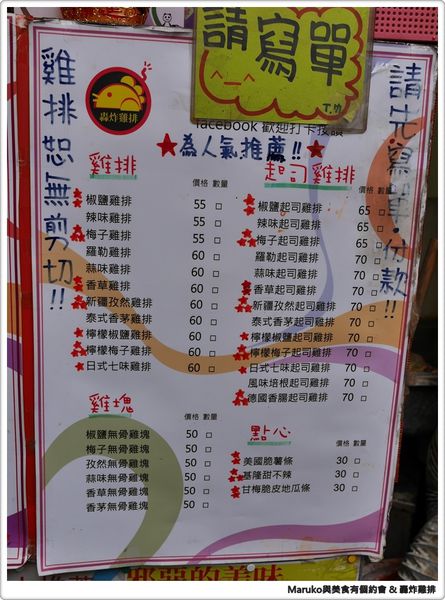 請寫單
T.ty
facebook 歡迎打卡按讚
★為人氣推薦!!★
雞排恕無剪切!!
請先寫單·付款!!
轟炸雞排
雞排
價格 數量
★椒鹽雞排 55 □
辣味雞排 55 □
★梅子雞排 55 □
羅勒雞排 60 □
蒜味雞排 60 □
★香草雞排 60 □
★新疆孜然雞排 60 □
泰式香茅雞排 60 □
★檸檬椒鹽雞排 60 □
★檸檬梅子雞排 60 □
★日式七味雞排 60 □
起司雞排
價格 數量
★椒鹽起司雞排 65 □
辣味起司雞排 65 □
★梅子起司雞排 65 □
羅勒起司雞排 70 □
蒜味起司雞排 70 □
★香草起司雞排 70 □
★新疆孜然起司雞排 70 □
泰式香茅起司雞排 70 □
★檸檬椒鹽起司雞排 70 □
★檸檬梅子起司雞排 70 □
★日式七味起司雞排 70 □
風味培根起司雞排 70 □
★德國香腸起司雞排 70 □
雞塊
價格 數量
椒鹽無骨雞塊 50 □
梅子無骨雞塊 50 □
孜然無骨雞塊 50 □
蒜味無骨雞塊 50 □
香草無骨雞塊 50 □
香茅無骨雞塊 50 □
點心
價格 數量
★美國脆薯條 30 □
★基隆甜不辣 30 □
★甘梅脆皮地瓜條 30 □
邪惡的美味
Maruko與美食有個約會 & 轟炸雞排